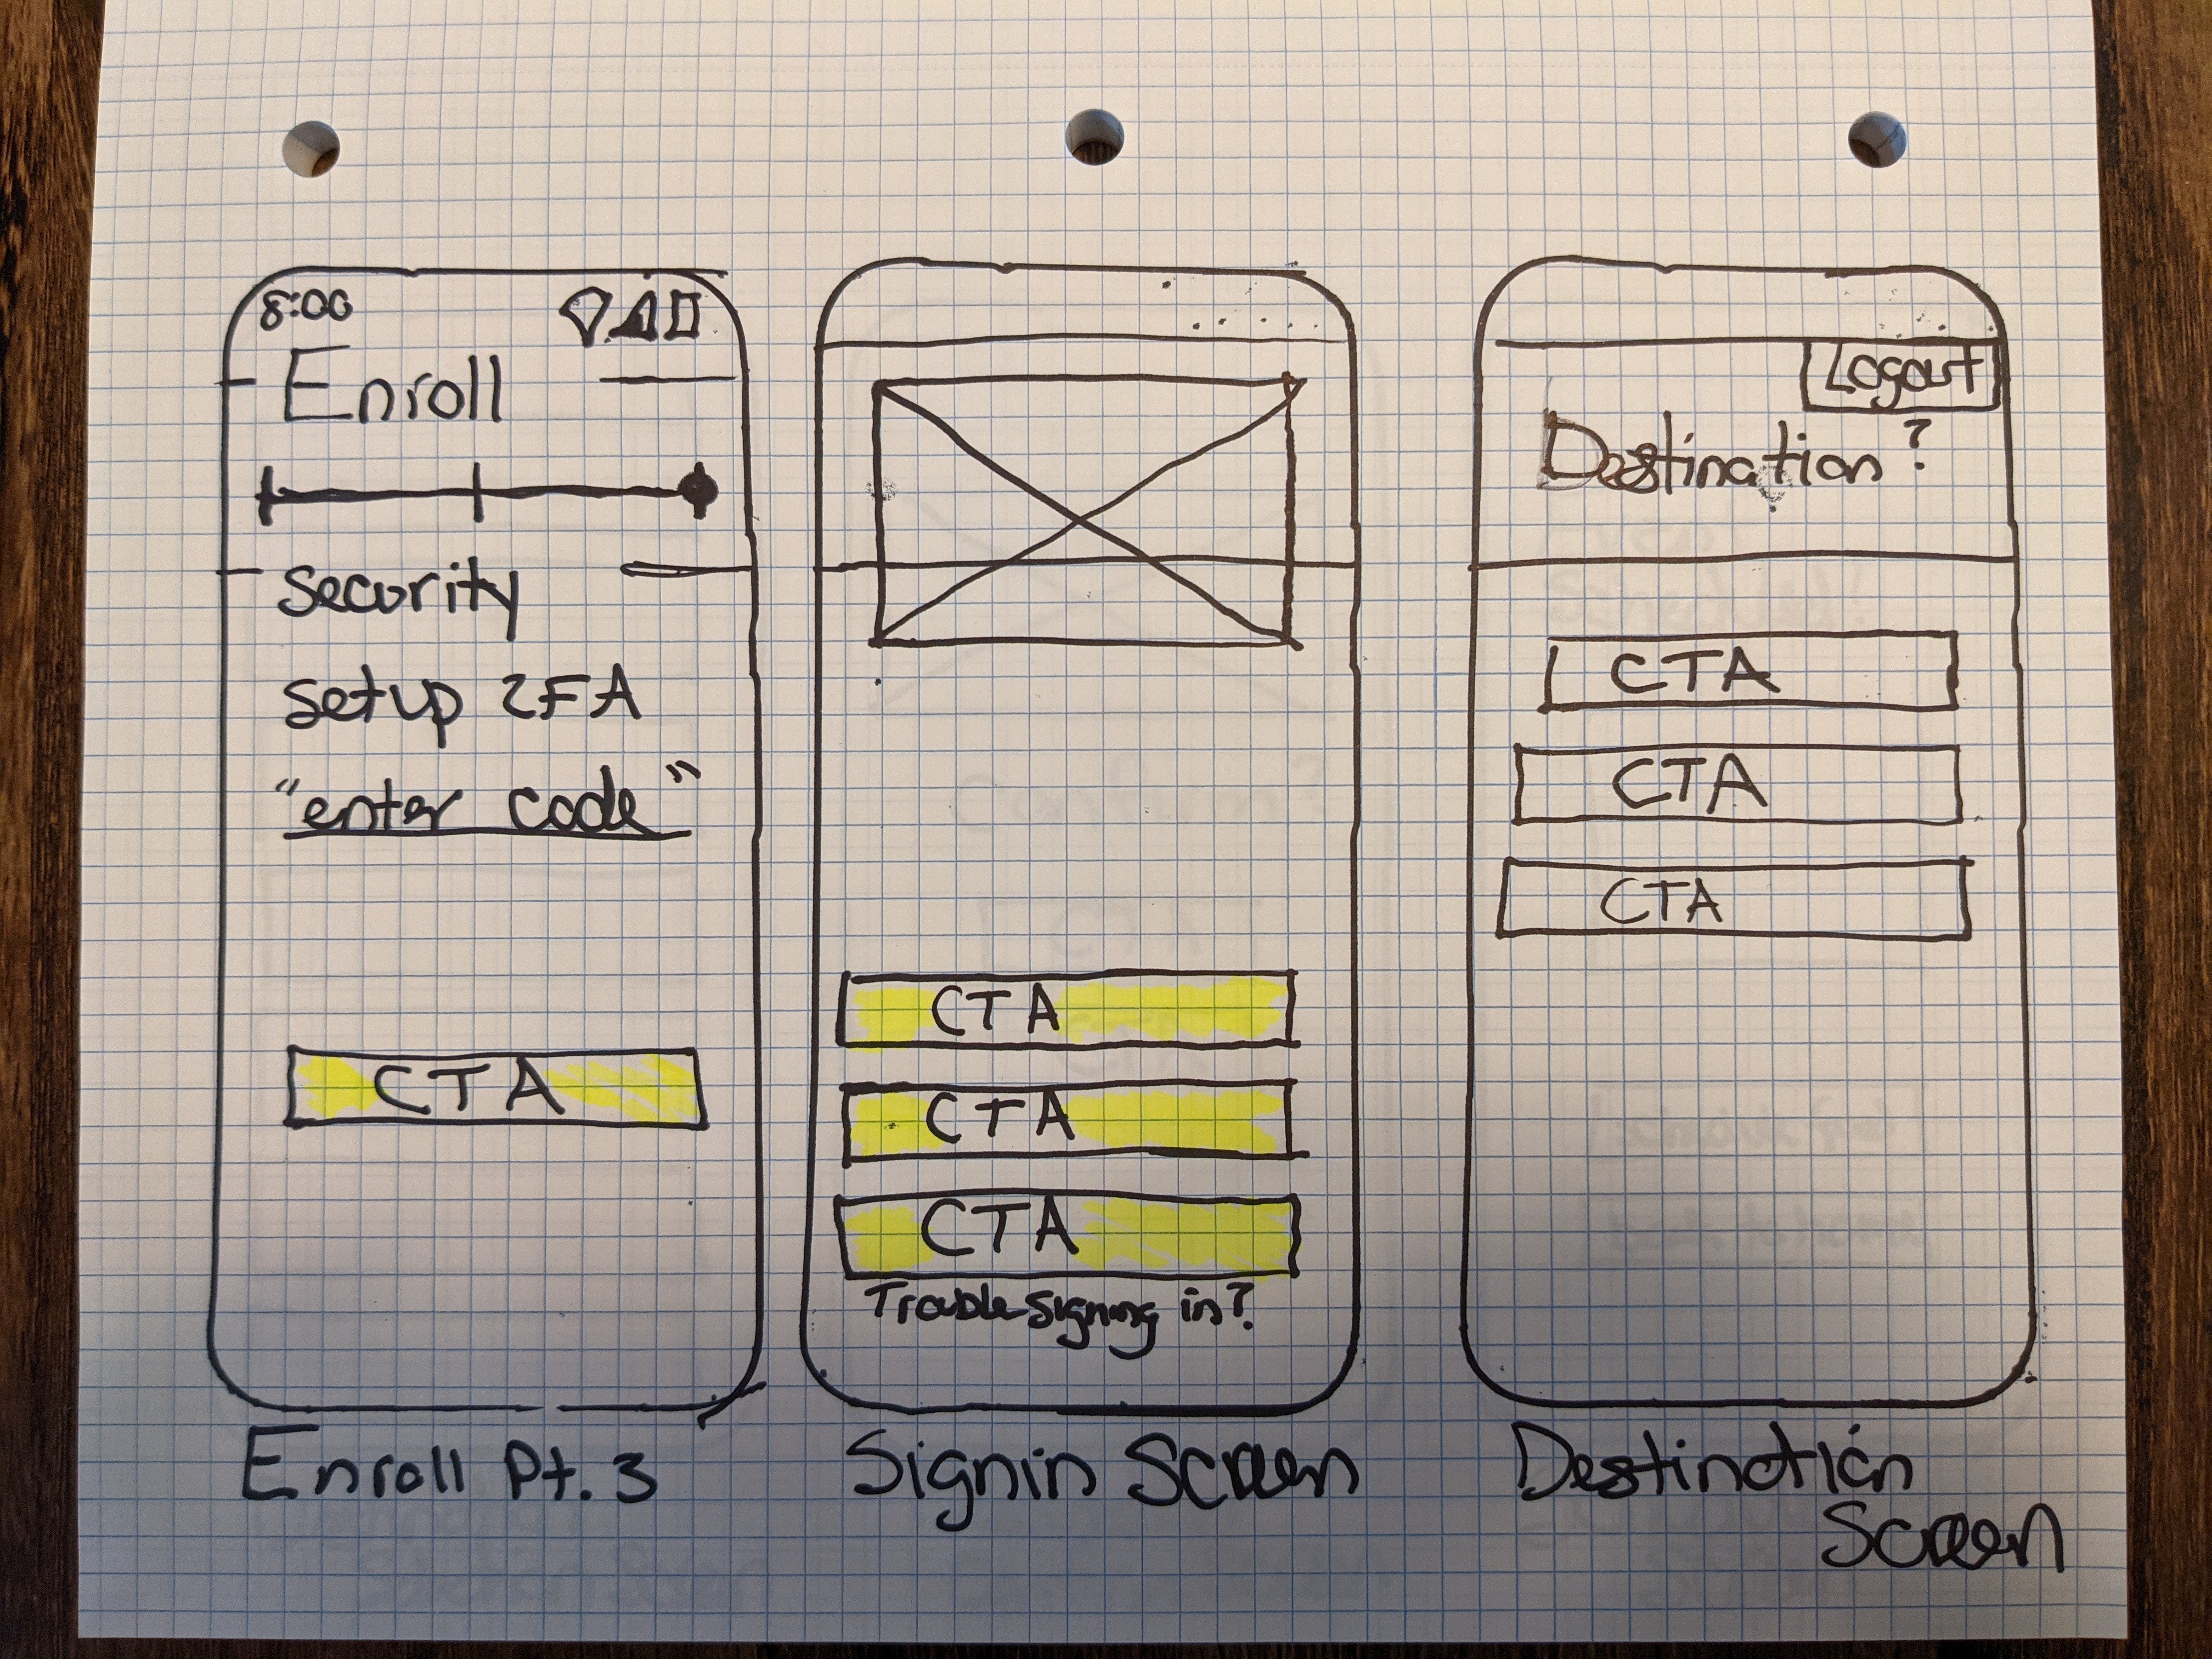 8:00
Enroll
security
setup 2FA
"enter code"
CTA
Enroll Pt. 3
CTA
CTA
CTA
Trouble signing in?
Signin Screen
Logout
Destination?
CTA
CTA
CTA
Destination
Screen